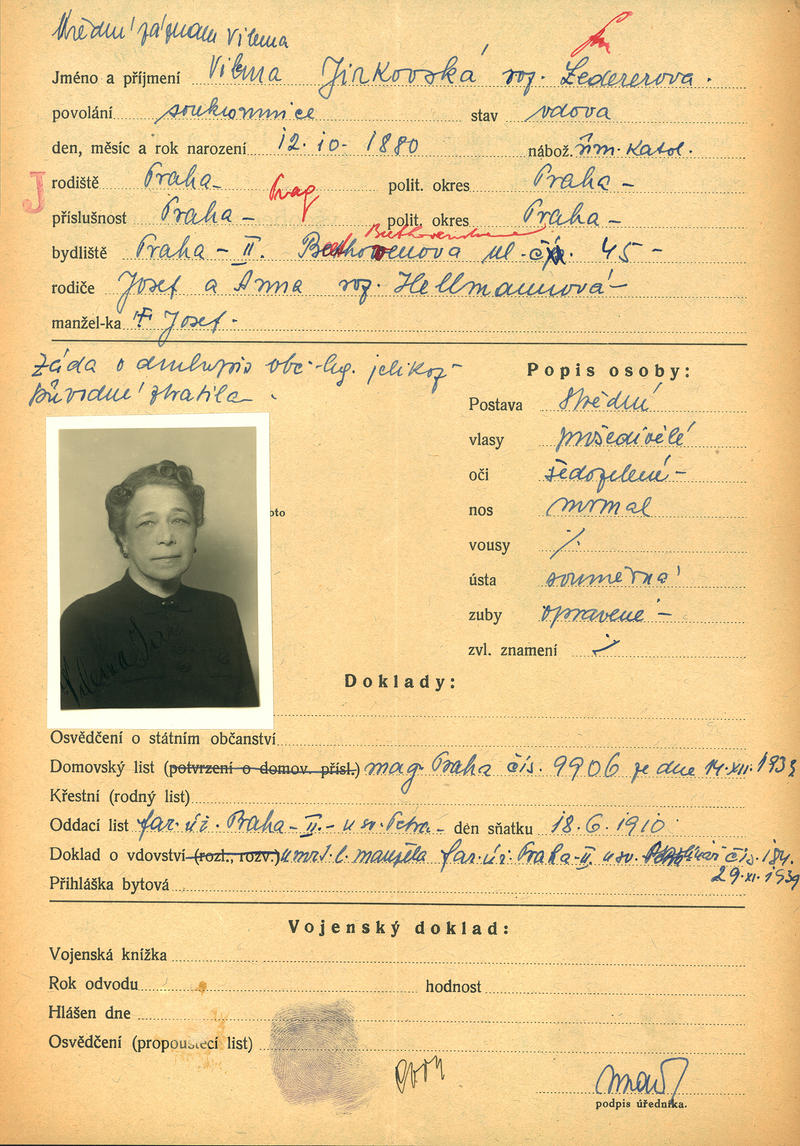 Úřední záznam Vilma
Jméno a příjmení Vilma Jirkovská roz. Ledererova.
povolání soukromnice stav vdova
den, měsíc a rok narození 12. 10. 1880 nábož. řím. katol.
J
rodiště Praha - Prag polit. okres Praha -
příslušnost Praha - polit. okres Praha -
bydliště Praha - II. Beethovenova ul. čp. 45 -
rodiče Josef a Anna roz. Hellmannová -
manžel-ka † Josef.
Žádá o druhopis obč. leg. jelikož
původní ztratila.
Popis osoby:
Postava střední
vlasy prošedivělé
oči šedozelené -
nos normal
vousy ·/.
ústa souměrná
zuby opravené -
zvl. znamení
oto
Vilma Jir
Doklady:
Osvědčení o státním občanství
Domovský list (potvrzení o domov. přísl.) mag. Praha čís. 9906 ze dne 14. XII. 1939
Křestní (rodný list)
Oddací list far. úř. Praha - II. - u sv. Petra - den sňatku 18. 6. 1910
Doklad o vdovství (rozl., rozv.) úmrt. l. manžela far. úř. Praha - II. u sv. čís. 184.
29. XI. 1939
Přihláška bytová
Vojenský doklad:
Vojenská knížka
Rok odvodu hodnost
Hlášen dne
Osvědčení (propouštěcí list)
podpis úředníka.